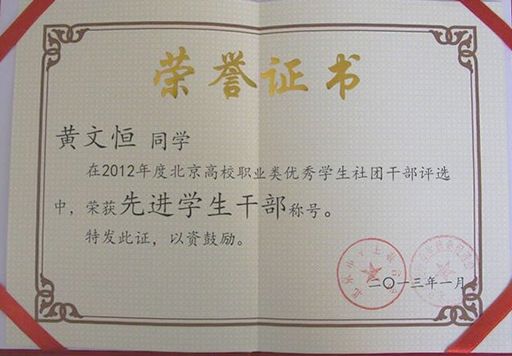 荣誉证书
黄文恒 同学
在2012年度北京高校职业类优秀学生社团干部评选
中，荣获先进学生干部称号。
特发此证，以资鼓励。
二〇一三年一月